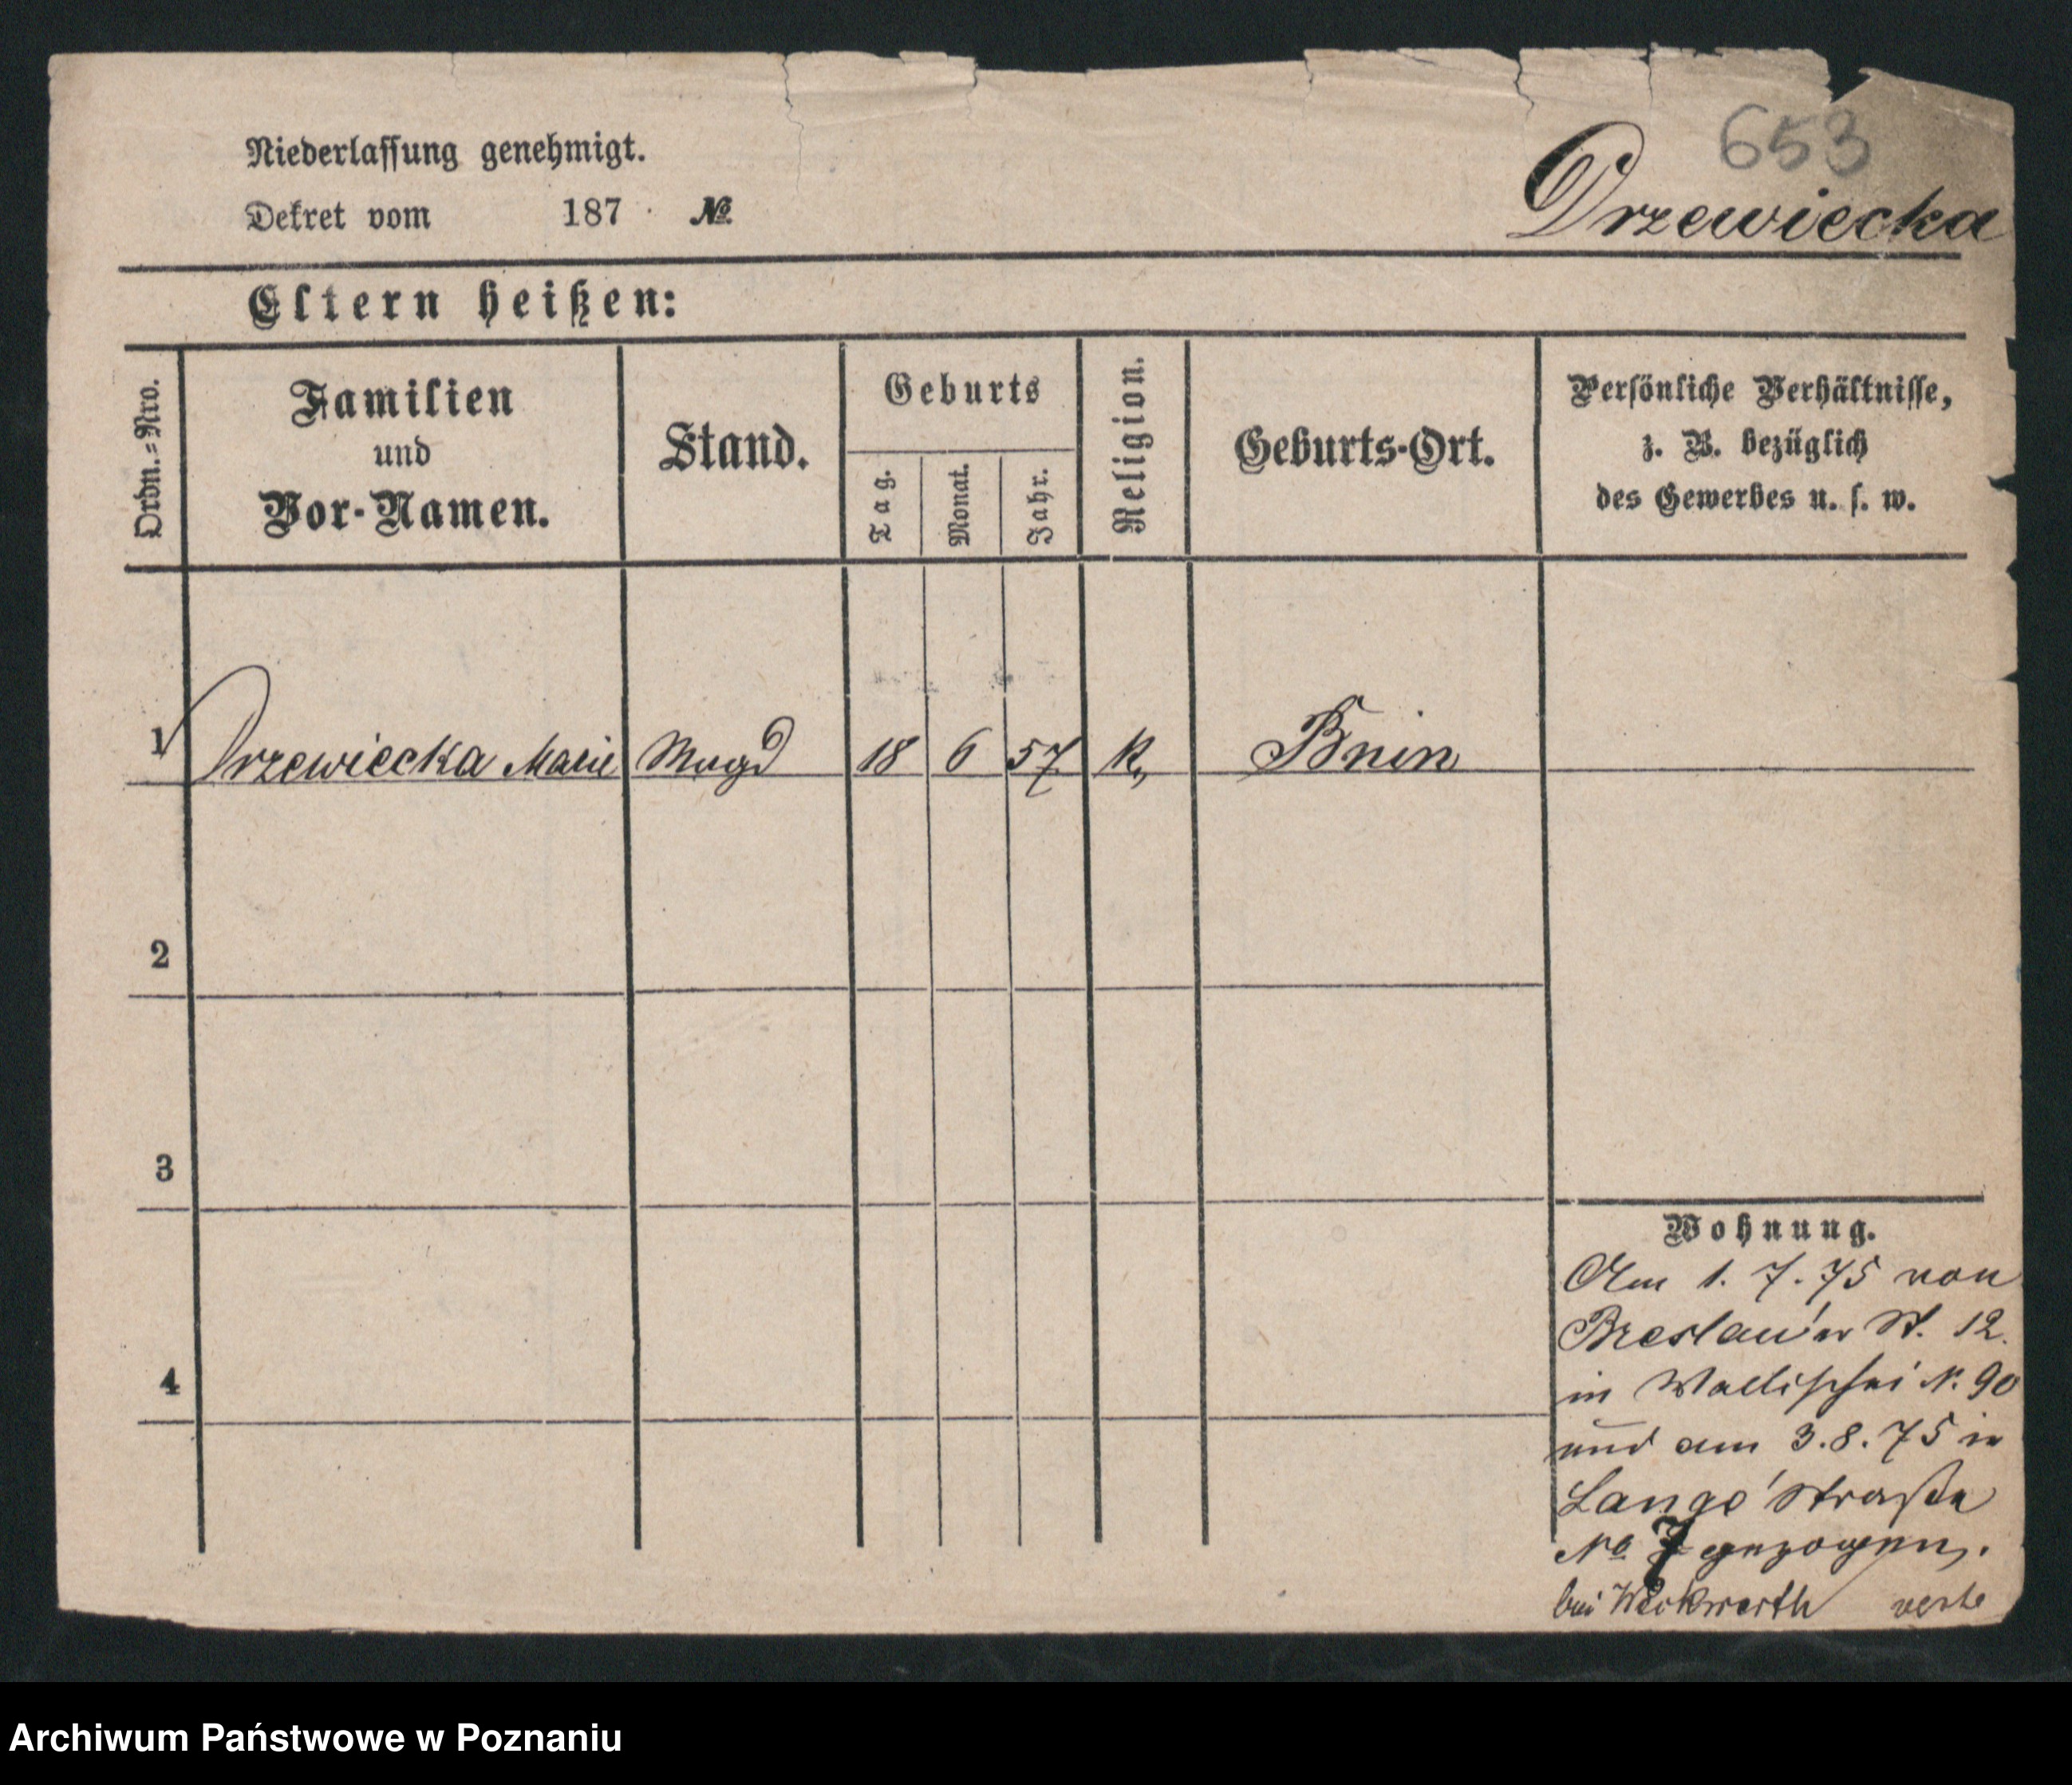 653
Niederlassung genehmigt.
Dekret vom 187 . №
Drzewiecka
Eltern heißen:
Ordn.=Nro.
Familien
und
Vor-Namen.
Stand.
Geburts
Tag.
Monat.
Jahr.
Religion.
Geburts-Ort.
Persönliche Verhältnisse,
z. B. bezüglich
des Gewerbes u. s. w.
1 Drzewiecka Marie Magd 18 6 57 K. Bnin
2
3
4
Wohnung.
Am 1. 7. 75 von
Breslauer St. 12.
in Wallischei N. 90
und am 3. 8. 75 in
Lange Straße
No 7 gezogen.
bei
Archiwum Państwowe w Poznaniu